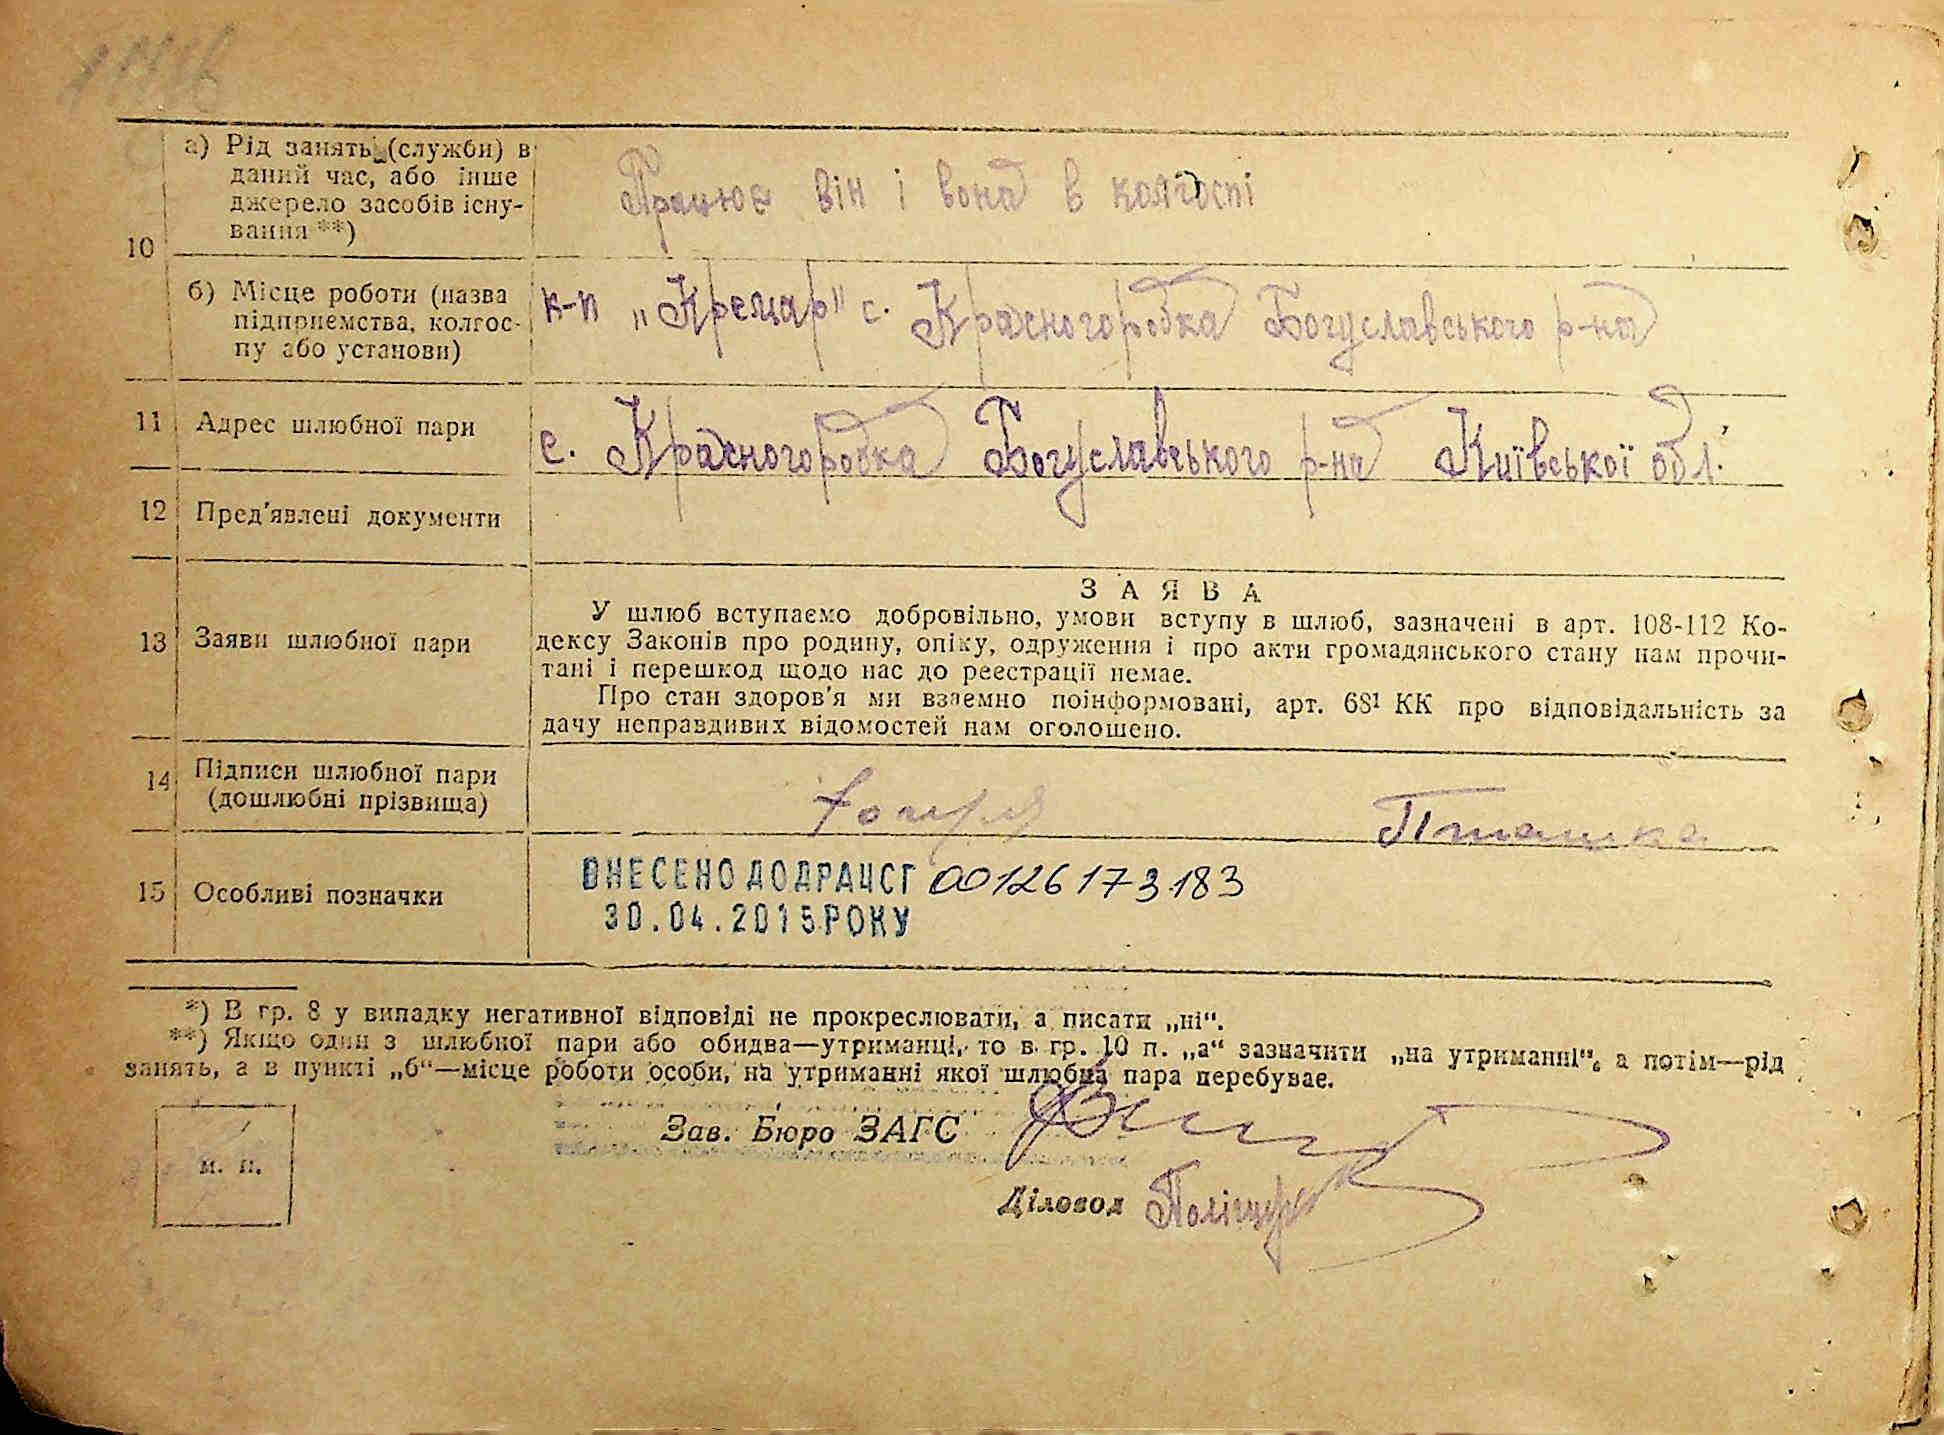 10
а) Рід занять (служби) в
даний час, або інше
джерело засобів існу-
вання **)
Працює він і вона в колгоспі
б) Місце роботи (назва
підприємства, колгос-
пу або установи)
к-п с. Красногоробка Богуславського р-на
11 Адрес шлюбної пари
с. Красногоробка Богуславського р-на Київської обл.
12 Пред'явлені документи
13 Заяви шлюбної пари
ЗАЯВА
У шлюб вступаємо добровільно, умови вступу в шлюб, зазначені в арт. 108-112 Ко-
дексу Законів про родину, опіку, одруження і про акти громадянського стану нам прочи-
тані і перешкод щодо нас до реєстрації немає.
Про стан здоров'я ми взаємно поінформовані, арт. 68¹ КК про відповідальність за
дачу неправдивих відомостей нам оголошено.
14 Підписи шлюбної пари
(дошлюбні прізвища)
Пташка
15 Особливі позначки
ВНЕСЕНО ДО ДРАЦСГ 00126173183
30.04.2015 РОКУ
*) В гр. 8 у випадку негативної відповіді не прокреслювати, а писати „ні“.
**) Якщо один з шлюбної пари або обидва—утриманці, то в гр. 10 п. „а“ зазначити „на утриманні“, а потім—рід
занять, а в пункті „б“—місце роботи особи, на утриманні якої шлюбна пара перебуває.
Зав. Бюро ЗАГС
м. п.
Діловод Поліщук